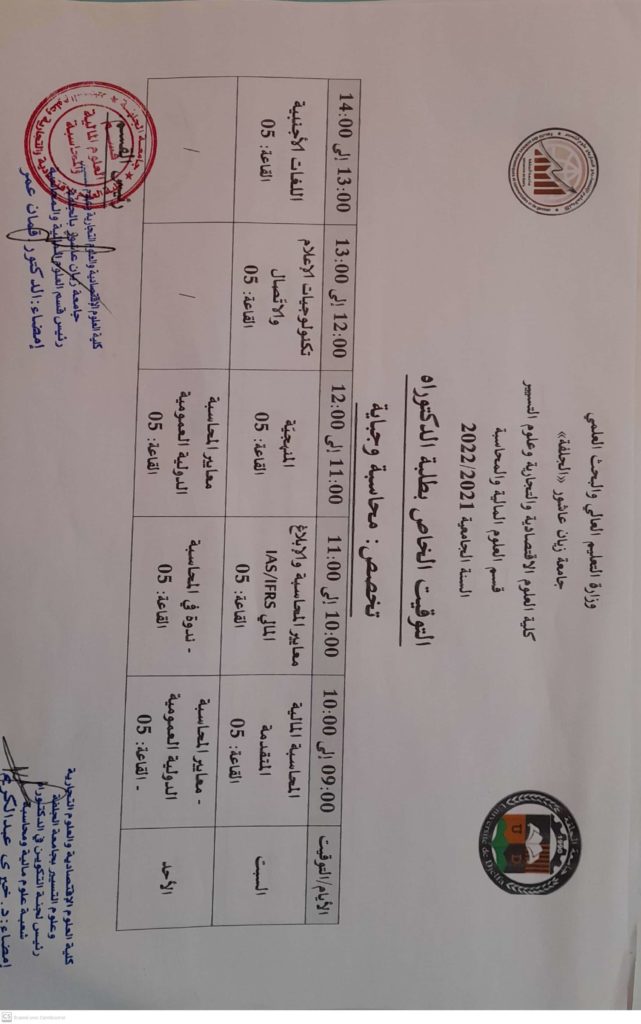 وزارة التعليم العالي والبحث العلمي
جامعة زيان عاشور «الجلفة»
كلية العلوم الاقتصادية والتجارية وعلوم التسيير
قسم العلوم المالية والمحاسبة
السنة الجامعية 2022/2021
التوقيت الخاص بطلبة الدكتوراه
تخصص: محاسبة وجباية
الأيام/التوقيت
09:00 إلى 10:00
10:00 إلى 11:00
11:00 إلى 12:00
12:00 إلى 13:00
13:00 إلى 14:00
السبت
المحاسبة المالية
المتقدمة
القاعة: 05
معايير المحاسبة والإبلاغ
المالي IAS/IFRS
القاعة: 05
المنهجية
القاعة: 05
تكنولوجيات الإعلام
والاتصال
القاعة: 05
اللغات الأجنبية
القاعة: 05
الأحد
- معايير المحاسبة
الدولية العمومية
- القاعة: 05
- ندوة في المحاسبة
القاعة: 05
معايير المحاسبة
الدولية العمومية
القاعة: 05
/
/
كلية العلوم الاقتصادية والعلوم التجارية
وعلوم التسيير بجامعة الجلفة
رئيس لجنة التكوين في الدكتوراه
شعبة علوم مالية ومحاسبة
إمضاء: د. خيري عبدالكريم
كلية العلوم الاقتصادية والعلوم التجارية
جامعة زيان عاشور بالجلفة
رئيس قسم العلوم المالية والمحاسبة
إمضاء: الدكتور قمان عمر
رئيس القسم
قسم
العلوم المالية
والمحاسبة
جامعة الجلفة
Université de Djelfa